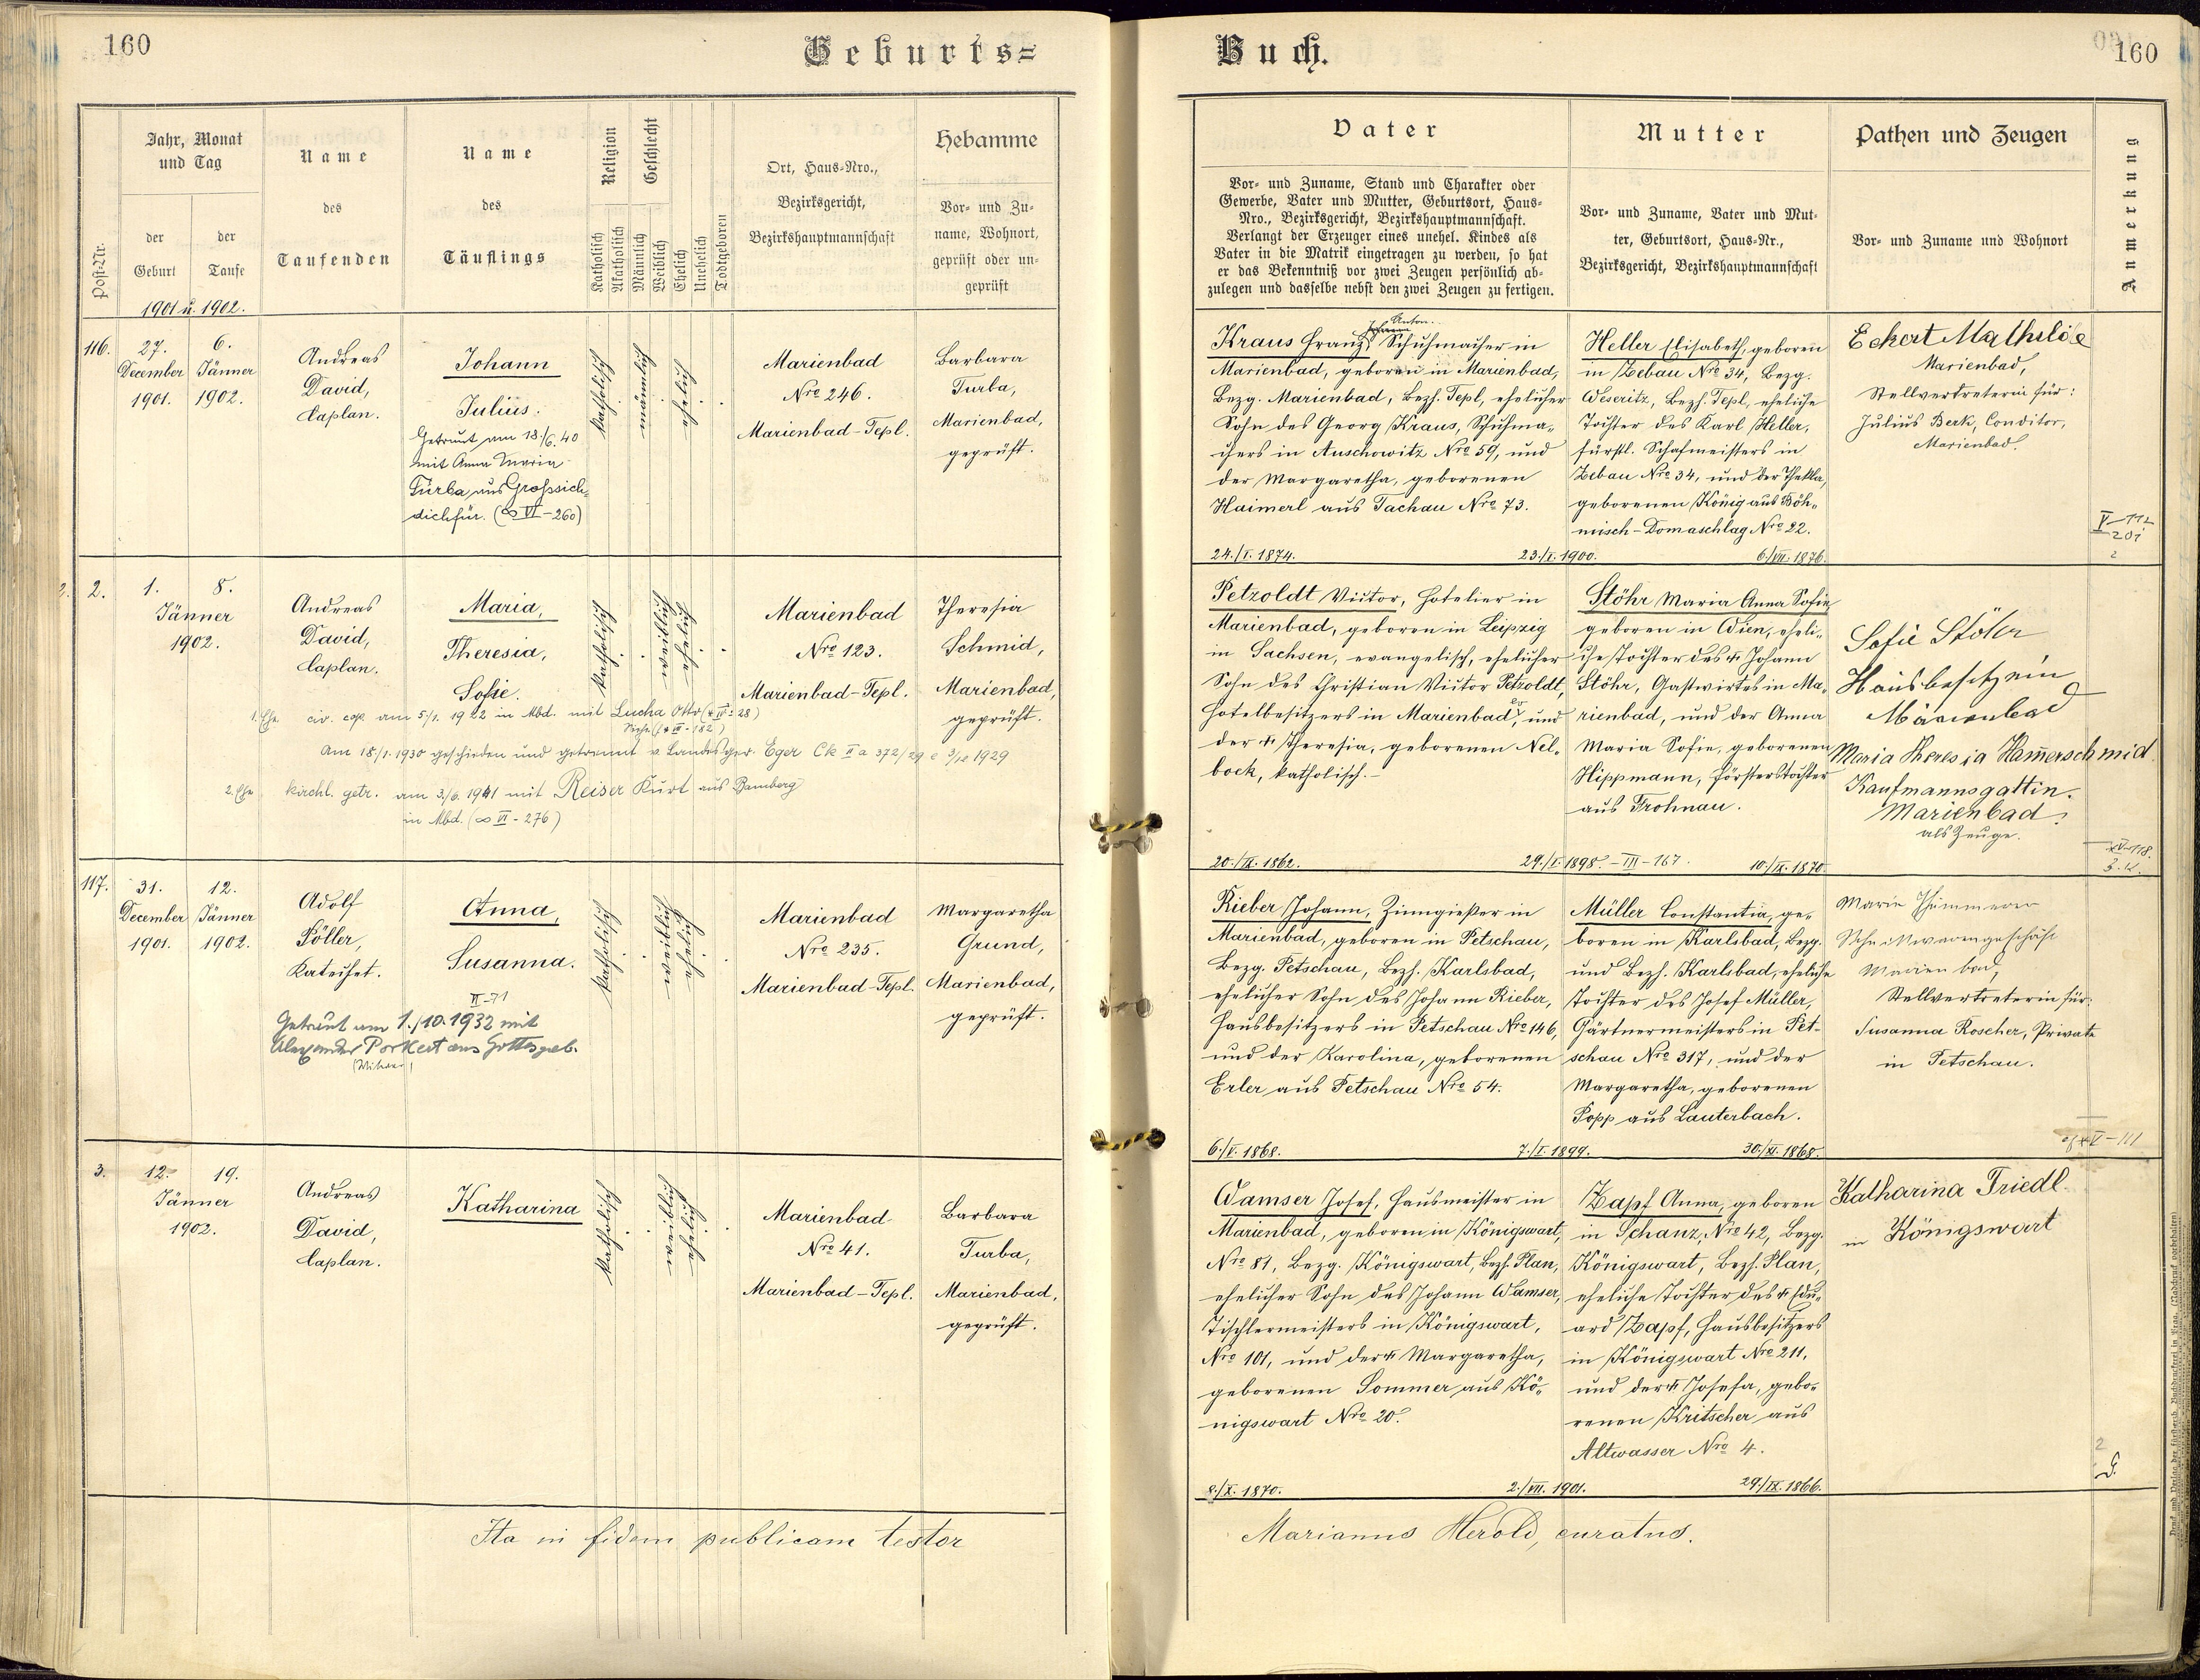 160
Geburts=
Jahr, Monat
und Tag
der
Geburt
der
Taufe
Post-Nr.
Name
des
Taufenden
Name
des
Täuflings
Religion
Katholisch
Akatholisch
Geschlecht
Männlich
Weiblich
Ehelich
Unehelich
Todtgeboren
Ort, Haus-Nro.,
Bezirksgericht,
Bezirkshauptmannschaft
Hebamme
Vor- und Zu-
name, Wohnort,
geprüft oder un-
geprüft
1901 u. 1902.
116.
27.
December
1901.
6.
Jänner
1902.
Andreas
David,
Caplan.
Johann
Julius.
Getraut am 18./6.40
mit Anna Maria
Turba aus Grosssich-
dichfür. (∞ VI-260)
katholisch
männlich
ehelich
Marienbad
Nro 246.
Marienbad-Tepl.
Barbara
Turba,
Marienbad,
geprüft.
2.
1.
8.
Jänner
1902.
Andreas
David,
Caplan.
Maria,
Theresia,
Sofie.
katholisch
weiblich
ehelich
Marienbad
Nro 123.
Marienbad-Tepl.
Theresia
Schmid,
Marienbad,
geprüft.
1. Ehe civ. cop. am 5/1. 1922 in Mbd. mit Lucha Otto
am 18/1.1930 geschieden und getrennt v. Landesger. Eger Ck II a 372/29 1929
2. Ehe kirchl. getr. am 3./6. 1941 mit Reiser Kurt aus Bamberg
in Mbd. (∞ VI-276)
117.
31.
December
1901.
12.
Jänner
1902.
Adolf
Pöller,
Katechet.
Anna,
Susanna.
II-71
Getraut am 1./10.1932 mit
Alexander Porkert aus Gottesgab.
(Witwer)
katholisch
weiblich
ehelich
Marienbad
Nro 235.
Marienbad-Tepl.
Margaretha
Grund,
Marienbad,
geprüft.
3.
12.
19.
Jänner
1902.
Andreas
David,
Caplan.
Katharina
katholisch
weiblich
ehelich
Marienbad
Nro 41.
Marienbad-Tepl.
Barbara
Turba,
Marienbad,
geprüft.
Ita in fidem publicam testor
Buch.
160
Vater
Vor- und Zuname, Stand und Charakter oder
Gewerbe, Vater und Mutter, Geburtsort, Haus-
Nro., Bezirksgericht, Bezirkshauptmannschaft.
Verlangt der Erzeuger eines unehel. Kindes als
Vater in die Matrik eingetragen zu werden, so hat
er das Bekenntniß vor zwei Zeugen persönlich ab-
zulegen und dasselbe nebst den zwei Zeugen zu fertigen.
Mutter
Vor- und Zuname, Vater und Mut-
ter, Geburtsort, Haus-Nr.,
Bezirksgericht, Bezirkshauptmannschaft
Pathen und Zeugen
Vor- und Zuname und Wohnort
Anmerkung
Anton.
Kraus Franz, Schuhmacher in
Marienbad, geboren in Marienbad,
Bezg. Marienbad, Bezh. Tepl, ehelicher
Sohn des Georg Kraus, Schuhma-
chers in Auschowitz Nro 59, und
der Margaretha, geborenen
Haimerl aus Tachau Nro 73.
24./I. 1874.
23./I. 1900.
Heller Elisabeth, geboren
in Zebau Nro 34, Bezg.
Weseritz, Bezh. Tepl, eheliche
Tochter des Karl Heller,
fürstl. Schafmeisters in
Zebau Nro 34, und der Thekla,
geborenen König aus Böh-
misch-Domaschlag Nro 22.
6./VII. 1876.
Eckert Mathilde
Marienbad,
Stellvertreterin für:
Julius Berk, Conditor,
Marienbad.
V-112
201
2
Petzoldt Victor, Hotelier in
Marienbad, geboren in Leipzig
in Sachsen, evangelisch, ehelicher
Sohn des Christian Victor Petzoldt,
Hotelbesitzers in Marienbad, ev. und
der † Theresia, geborenen Nel-
bock, katholisch.-
20./IX. 1862.
29./I. 1898. - III-167.
Stöhr Maria Anna Sofie
geboren in Wien, eheli-
che Tochter des † Johann
Stöhr, Gastwirtes in Ma-
rienbad, und der Anna
Maria Sofie, geborenen
Hippmann, Försterstochter
aus Frohnau.
10./IX. 1870.
Sofie Stöhr
Hausbesitzerin
Marienbad
Maria Theresia Hammerschmid
Kaufmannsgattin.
Marienbad.
als Zeuge.
Rieber Johann, Zinngießer in
Marienbad, geboren in Petschau,
Bezg. Petschau, Bezh. Karlsbad,
ehelicher Sohn des Johann Rieber,
Hausbesitzers in Petschau Nro 146,
und der Karolina, geborenen
Erler aus Petschau Nro 54.
6./V. 1868.
7./I. 1899.
Müller Constantia, ge-
boren in Karlsbad, Bezg.
und Bezh. Karlsbad, eheliche
Tochter des Josef Müller,
Gärtnermeisters in Pet-
schau Nro 317, und der
Margaretha, geborenen
Popp aus Lauterbach.
30./XI. 1868.
Marie
Schnittwarengeschäft
Marienbad,
Stellvertreterin für:
Susanna Roscher, Private
in Petschau.
V-111
Wamser Josef, Hausmeister in
Marienbad, geboren in Königswart,
Nro 81, Bezg. Königswart, Bezh. Plan,
ehelicher Sohn des Johann Wamser,
Tischlermeisters in Königswart,
Nro 101, und der † Margaretha,
geborenen Sommer aus Kö-
nigswart Nro 20.
8./X. 1870.
2./VII. 1901.
Zapf Anna, geboren
in Schanz, Nro 42, Bezg.
Königswart, Bezh. Plan,
eheliche Tochter des † Edu-
ard Zapf, Hausbesitzers
in Königswart Nro 211,
und der † Josefa, gebo-
renen Kritscher aus
Altwasser Nro 4.
29./IX. 1866.
Katharina Friedl
in Königswart
2
Marianus Herold, curatus.